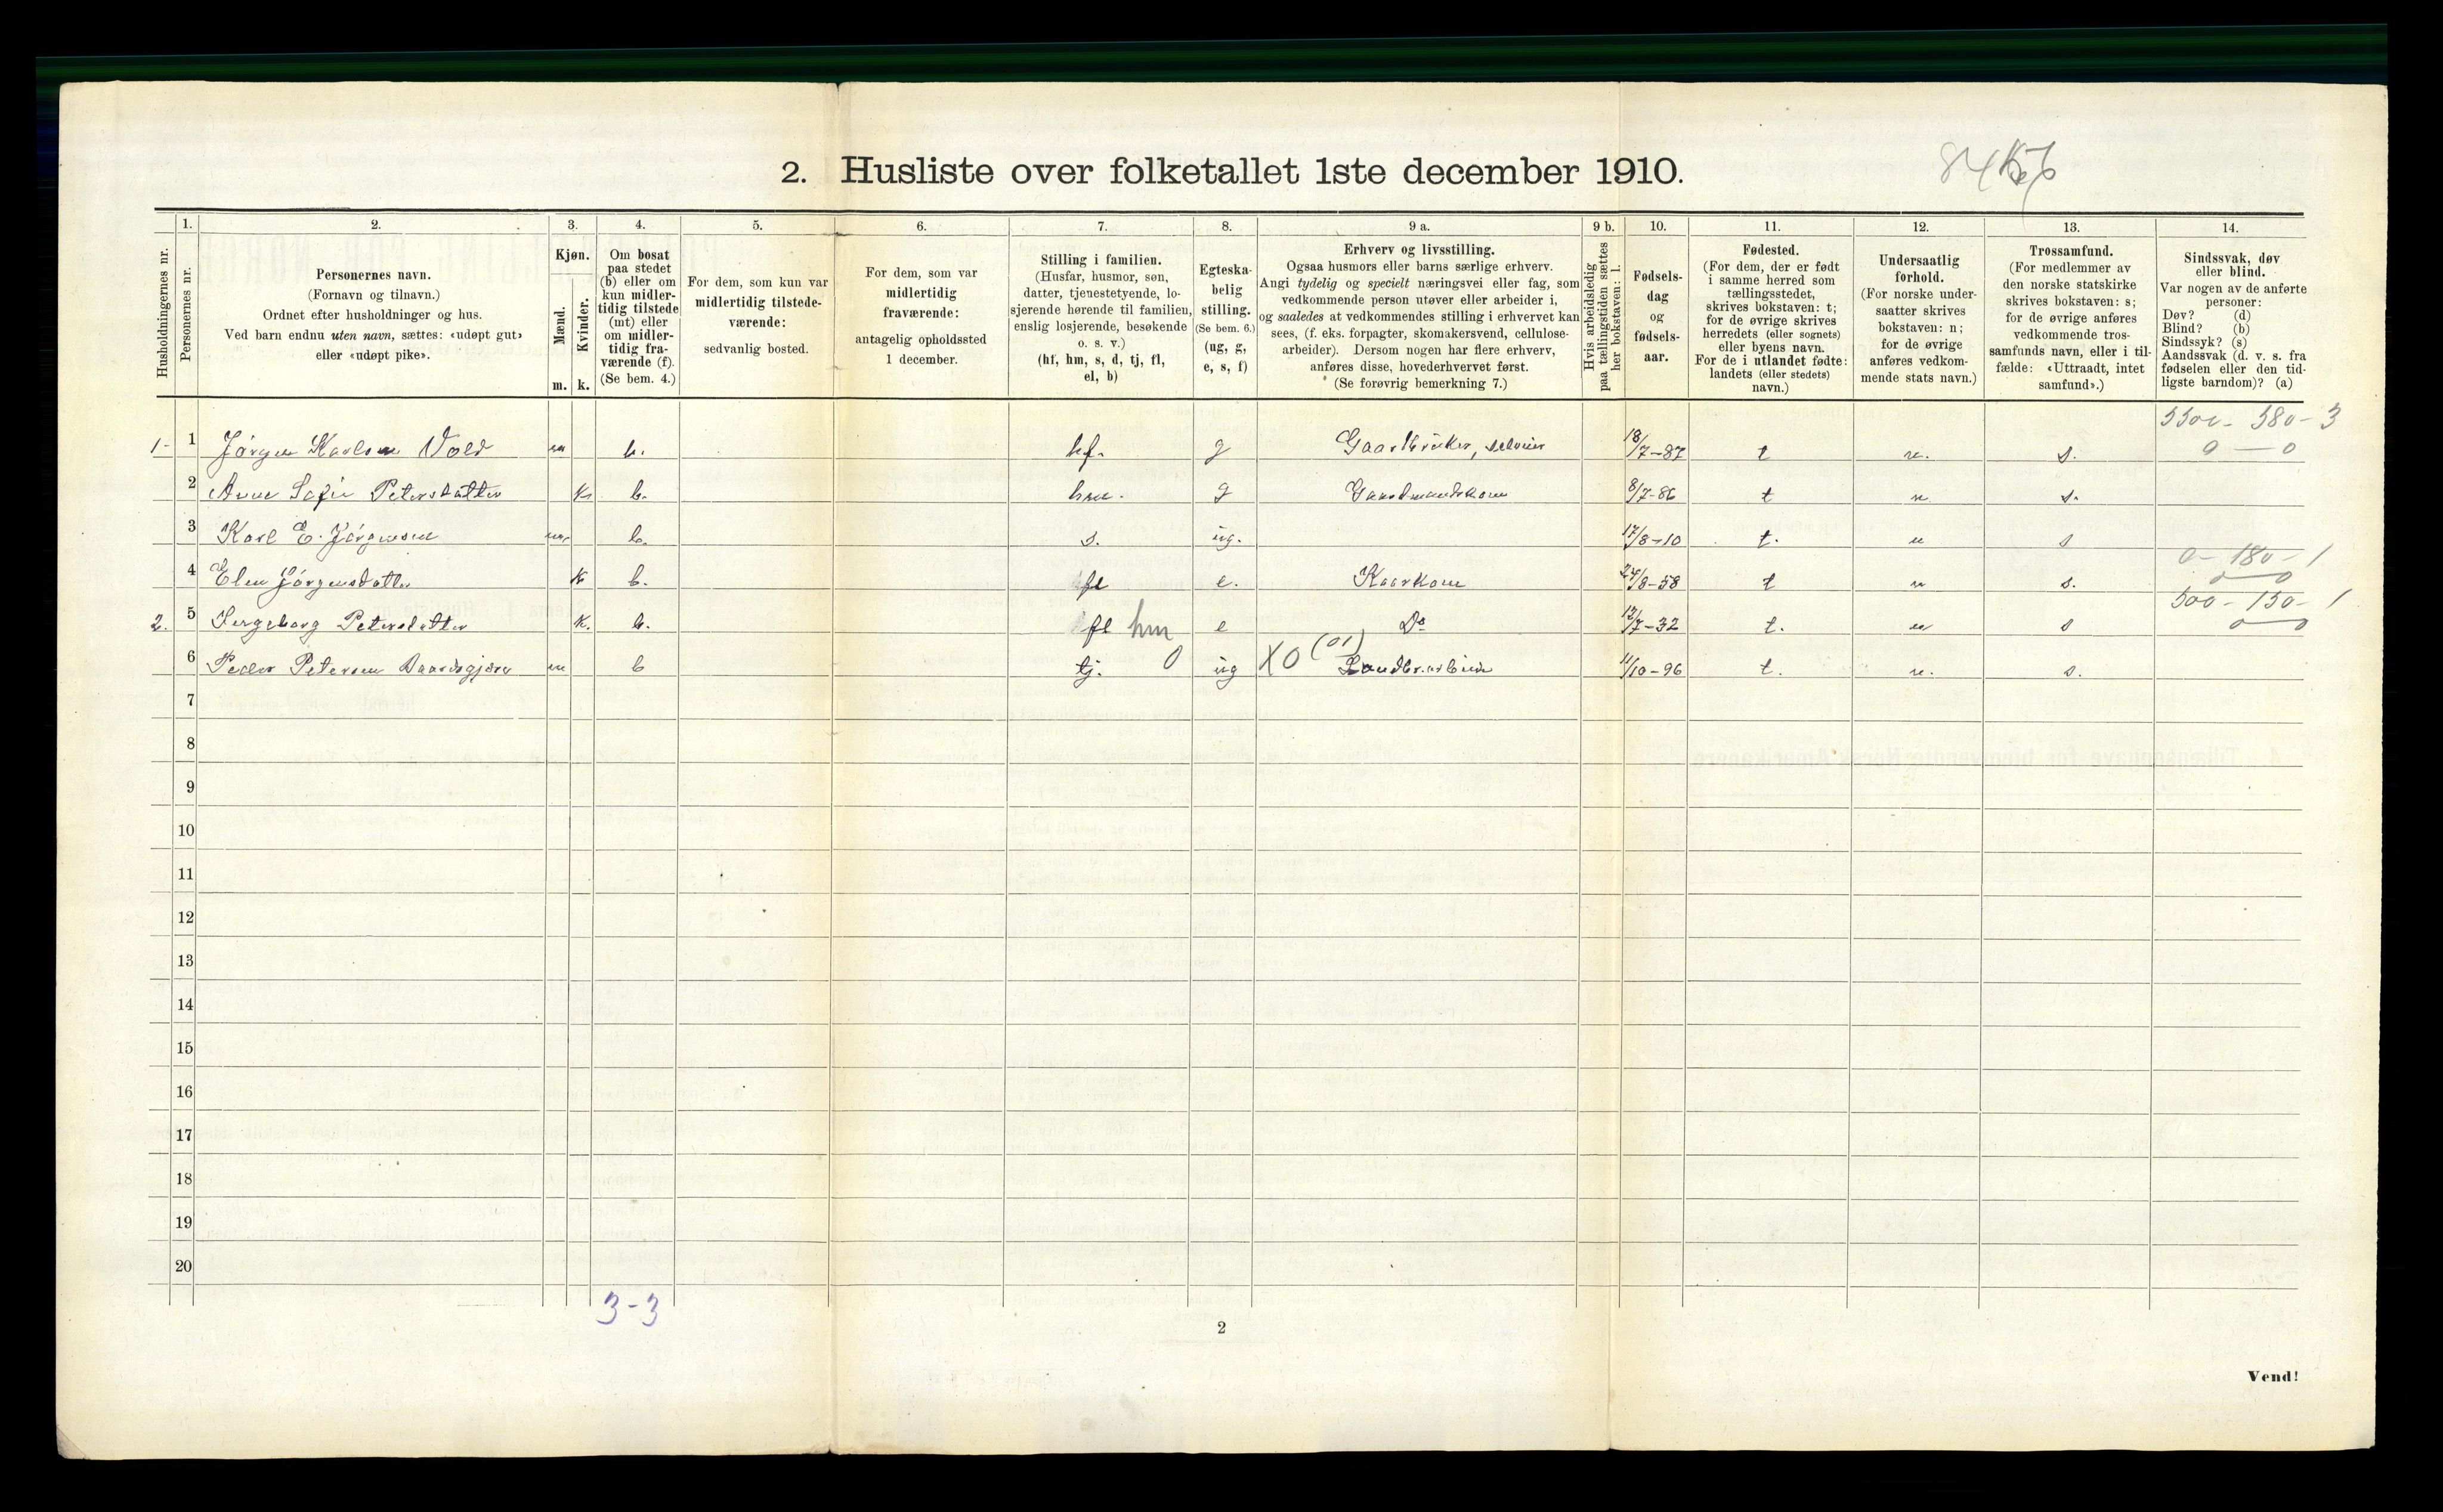 2. Husliste over folketallet 1ste december 1910.
Husholdningernes nr.
1. Personernes nr.
2. Personernes navn.
(Fornavn og tilnavn.)
Ordnet efter husholdninger og hus.
Ved barn endnu uten navn, sættes: «udøpt gut»
eller «udøpt pike».
3. Kjøn.
Mænd. m.
Kvinder. k.
4. Om bosat
paa stedet
(b) eller om
kun midler-
tidig tilstede
(mt) eller
om midler-
tidig fra-
værende (f).
(Se bem. 4.)
5. For dem, som kun var
midlertidig tilstede-
værende:
sedvanlig bosted.
6. For dem, som var
midlertidig
fraværende:
antagelig opholdssted
1 december.
7. Stilling i familien.
(Husfar, husmor, søn,
datter, tjenestetyende, lo-
sjerende hørende til familien,
enslig losjerende, besøkende
o. s. v.)
(hf, hm, s, d, tj, fl,
el, b)
8. Egteska-
belig
stilling.
(Se bem. 6.)
(ug, g,
e, s, f)
9 a. Erhverv og livsstilling.
Ogsaa husmors eller barns særlige erhverv.
Angi tydelig og specielt næringsvei eller fag, som
vedkommende person utøver eller arbeider i,
og saaledes at vedkommendes stilling i erhvervet kan
sees, (f. eks. forpagter, skomakersvend, cellulose-
arbeider). Dersom nogen har flere erhverv,
anføres disse, hovederhvervet først.
(Se forøvrig bemerkning 7.)
9 b. Hvis arbeidsledig
paa tællingstiden sættes
her bokstaven: l.
10. Fødsels-
dag
og
fødsels-
aar.
11. Fødested.
(For dem, der er født
i samme herred som
tællingsstedet,
skrives bokstaven: t;
for de øvrige skrives
herredets (eller sognets)
eller byens navn.
For de i utlandet fødte:
landets (eller stedets)
navn.)
12. Undersaatlig
forhold.
(For norske under-
saatter skrives
bokstaven: n;
for de øvrige
anføres vedkom-
mende stats navn.)
13. Trossamfund.
(For medlemmer av
den norske statskirke
skrives bokstaven: s;
for de øvrige anføres
vedkommende tros-
samfunds navn, eller i til-
fælde: «Uttraadt, intet
samfund».)
14. Sindssvak, døv
eller blind.
Var nogen av de anførte
personer:
Døv? (d)
Blind? (b)
Sindssyk? (s)
Aandssvak (d. v. s. fra
fødselen eller den tid-
ligste barndom)? (a)
1- 1 Jørgen Karlsen Vold m b. hf. g Gaardbruker, selveier 18/7-87 t n. s. 0 — 0
2 Anne Sofie Petersdatter k b. hm. g Gaardmandskone 8/7-86 t n s.
3 Karl E. Jørgensen m. b. s. ug. 17/8-10 t. n s
4 Elen Jørgensdatter k b. fl e. Kaarkone 24/8-58 t n s. 0 - 180 - 1 0 — 0
2. 5 Ingeborg Petersdatter k. b. fl hm e Do 12/7-32 t. n s 500 - 150 - 1 0 — 0
6 Peder Petersen m b tj. 0 ug X0 (01) Landbr.arbeider 11/10-96 t. n. s.
7
8
9
10
11
12
13
14
15
16
17
18
19
20
3-3
2
Vend!